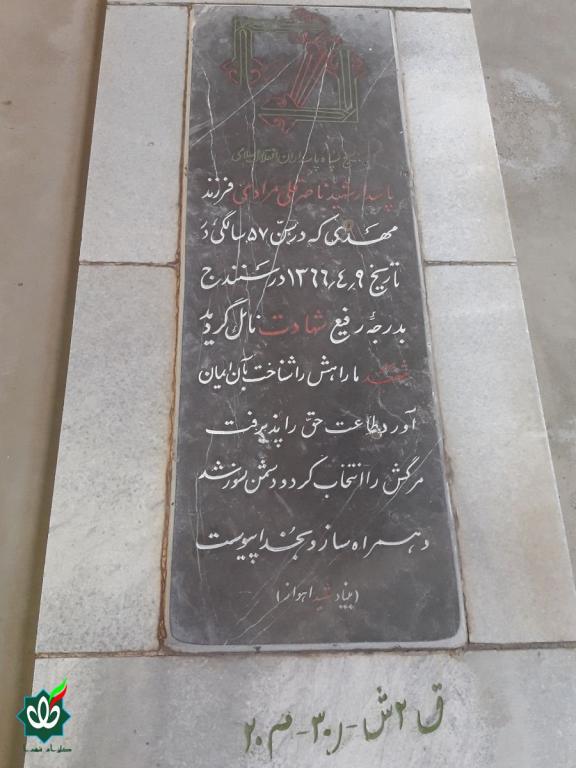 بسیج سپاه پاسداران انقلاب اسلامی
پاسدار شهید ناصر علی مرادی فرزند
مهدی که در سن ۵۷ سالگی در
تاریخ ۱۳۶۶٫۴٫۹ در سنندج
بدرجهٔ رفیع شهادت نائل گردید
شهید ما راهش را شناخت بآن ایمان
آورد طاعت حق را پذیرفت
مرگش را انتخاب کرد و دشمن سوز شد
همراه ساز و بخدا پیوست
(بنیاد شهید اهواز)
ق ۲ ش - ر ۳۰ - م ۲۰
گلزار شهدا